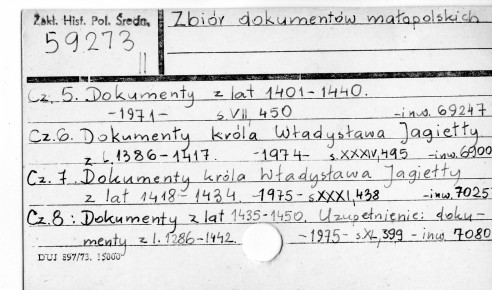 Zakł. Hist. Pol. Średn.
59273
||
Zbiór dokumentów małopolskich
Cz. 5. Dokumenty z lat 1401-1440.
-1971- s. VII, 450 -inw. 69247
Cz. 6. Dokumenty króla Władysława Jagiełły
z l. 1386-1417. -1974- s. XXXIV, 495 -inw. 6900
Cz. 7. Dokumenty króla Władysława Jagiełły
z lat 1418-1434. -1975- s. XXXI, 438 -inw. 7025
Cz. 8: Dokumenty z lat 1435-1450. Uzupełnienie: doku-
menty z l. 1286-1442. -1975- s. XL, 399 -inw. 7080
DUJ 897/73. 15000